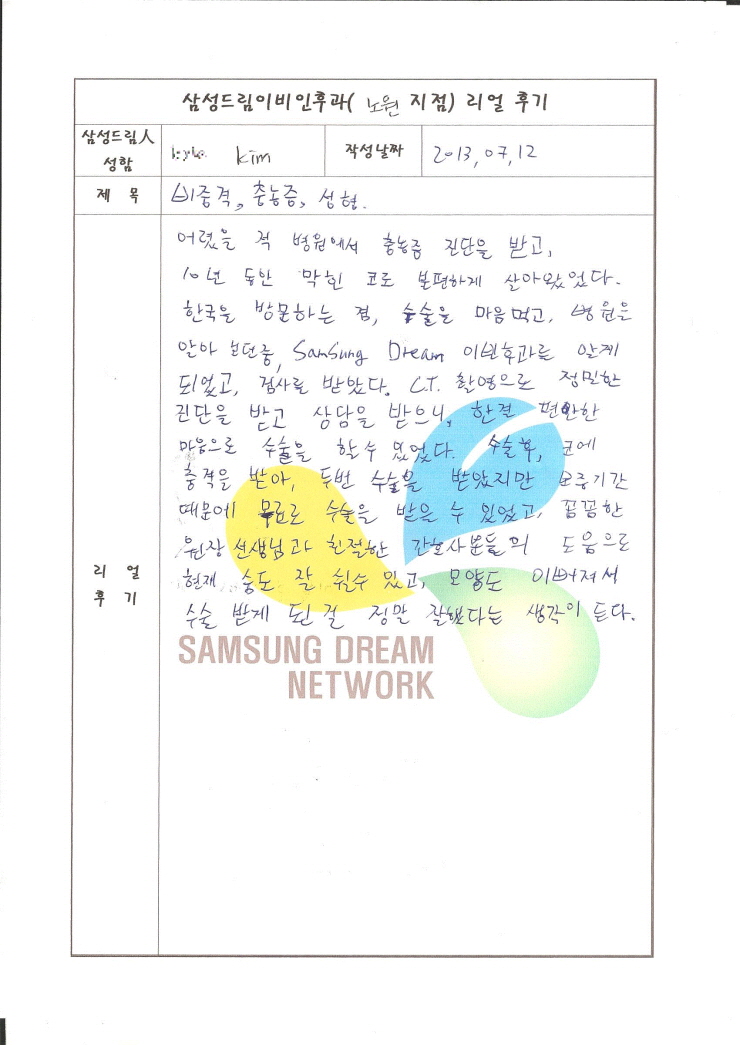 삼성드림이비인후과( 노원 지점) 리얼 후기
삼성드림人 성함
kim
작성날짜
2013, 07, 12
제 목
비중격, 충농증, 성형.
리 얼 후 기
어렸을 적 병원에서 충농증 진단을 받고,
10년 동안 막힌 코로 불편하게 살아왔었다.
한국을 방문하는 겸, 수술을 마음먹고, 병원을
알아 보던중, SamSung Dream 이빈후과를 알게
되었고, 검사를 받았다. C.T. 촬영으로 정밀한
진단을 받고 상담을 받으니, 한결 편안한
마음으로 수술을 할수 있었다. 수술후, 코에
충격을 받아, 두번 수술을 받았지만 보증기간
때문에 무료로 수술을 받을 수 있었고, 꼼꼼한
원장 선생님과 친절한 간호사분들의 도움으로
현재 숨도 잘 쉴수 있고, 모양도 이뻐져서
수술 받게 된 걸 정말 잘했다는 생각이 든다.
SAMSUNG DREAM
NETWORK